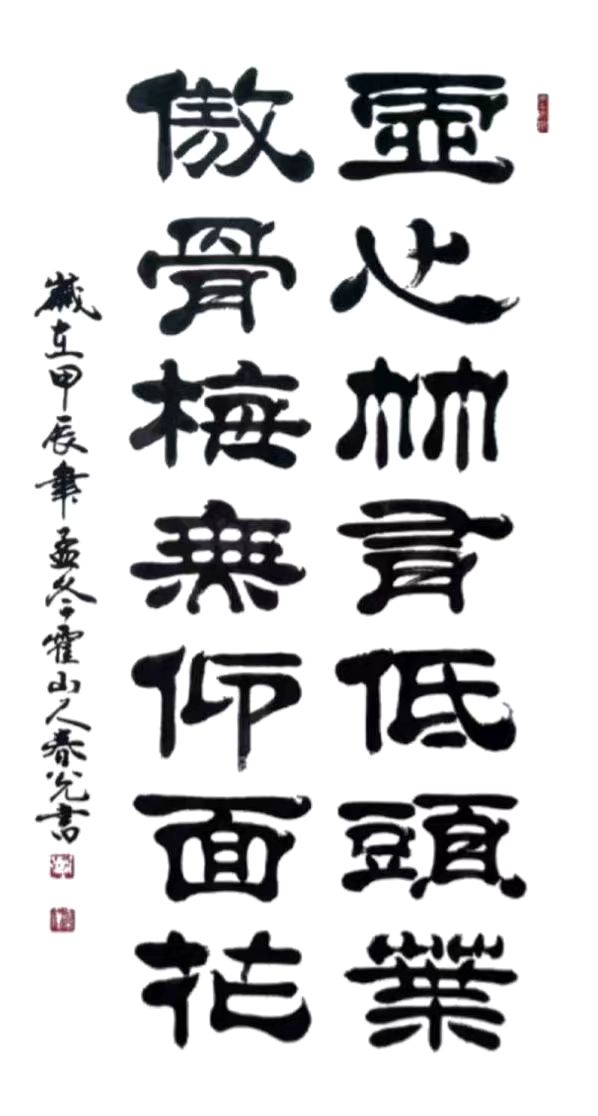 虚心竹有低頭葉
傲骨梅無仰面花
歲在甲辰年孟冬霍山人春光書